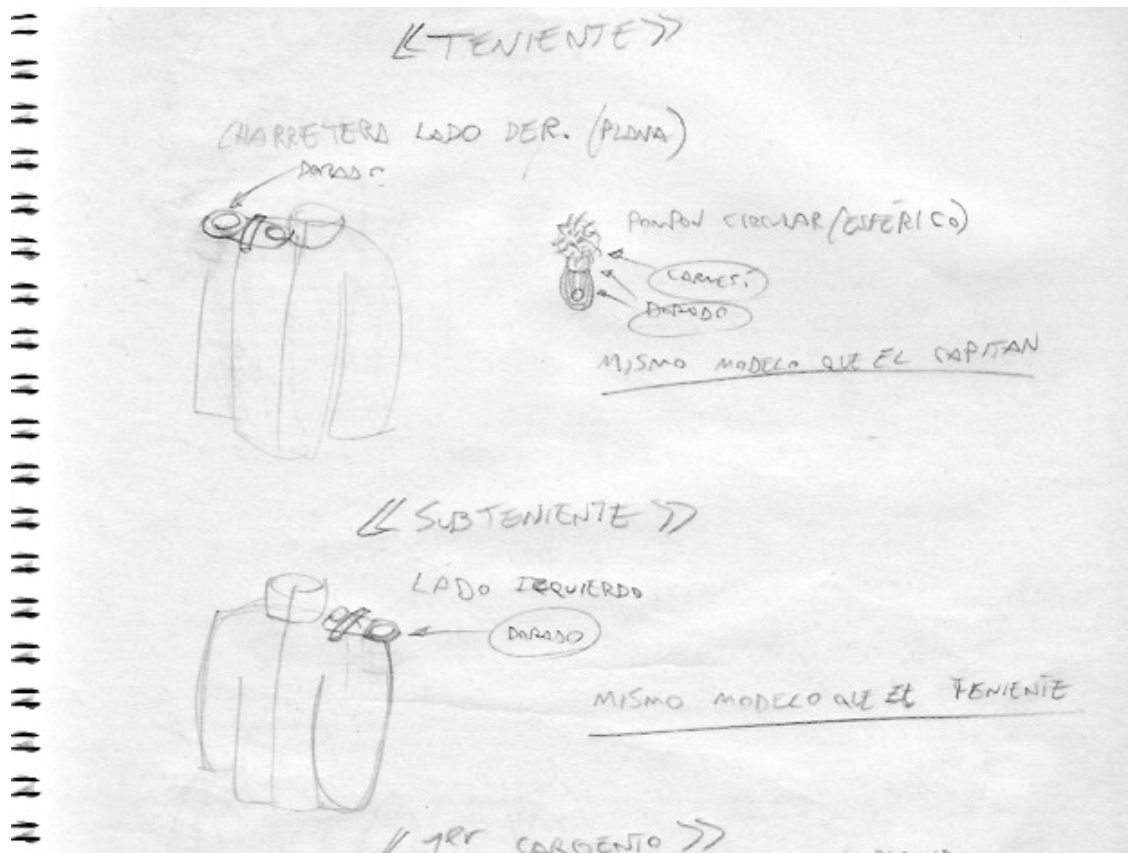 «TENIENTE»
CHARRETERA LADO DER. (PLANA)
DORADO
PONPON CIRCULAR/(ESFÉRICO)
CARMESÍ
DORADO
MISMO MODELO QUE EL CAPITAN
«SUBTENIENTE»
LADO IZQUIERDO
DORADO
MISMO MODELO QUE EL TENIENTE
«1er SARGENTO»